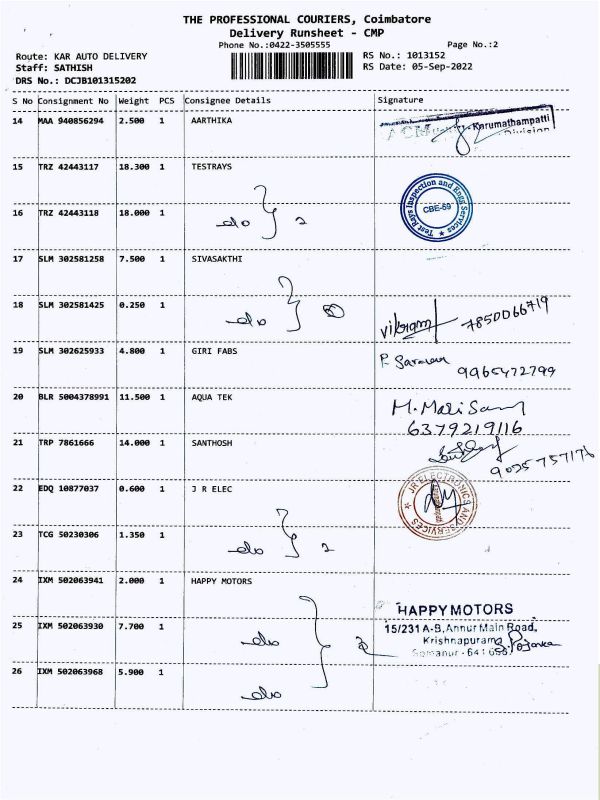 THE PROFESSIONAL COURIERS, Coimbatore
Delivery Runsheet - CMP
Phone No.:0422-3505555
Page No.:2
Route: KAR AUTO DELIVERY
RS No.: 1013152
Staff: SATHISH
RS Date: 05-Sep-2022
DRS No.: DCJB101315202
S No Consignment No Weight PCS Consignee Details Signature
14 MAA 940856294 2.500 1 AARTHIKA
Karumathampatti
Division
15 TRZ 42443117 18.300 1 TESTRAYS
Test Rays Inspection and Engg Services
CBE-59
16 TRZ 42443118 18.000 1 do 2
17 SLM 302581258 7.500 1 SIVASAKTHI
18 SLM 302581425 0.250 1 do
Vikram 7850066719
19 SLM 302625933 4.800 1 GIRI FABS
9965472799
20 BLR 5004378991 11.500 1 AQUA TEK
6379219116
21 TRP 7861666 14.000 1 SANTHOSH
22 EDQ 10877037 0.600 1 J R ELEC
JR ELECTRONICS AND SERVICES
23 TCG 50230306 1.350 1 do 2
24 IXM 502063941 2.000 1 HAPPY MOTORS
HAPPY MOTORS
25 IXM 502063930 7.700 1 do
15/231 A-B, Annur Main Road,
Krishnapuram
Somanur - 641 668.
26 IXM 502063968 5.900 1 do